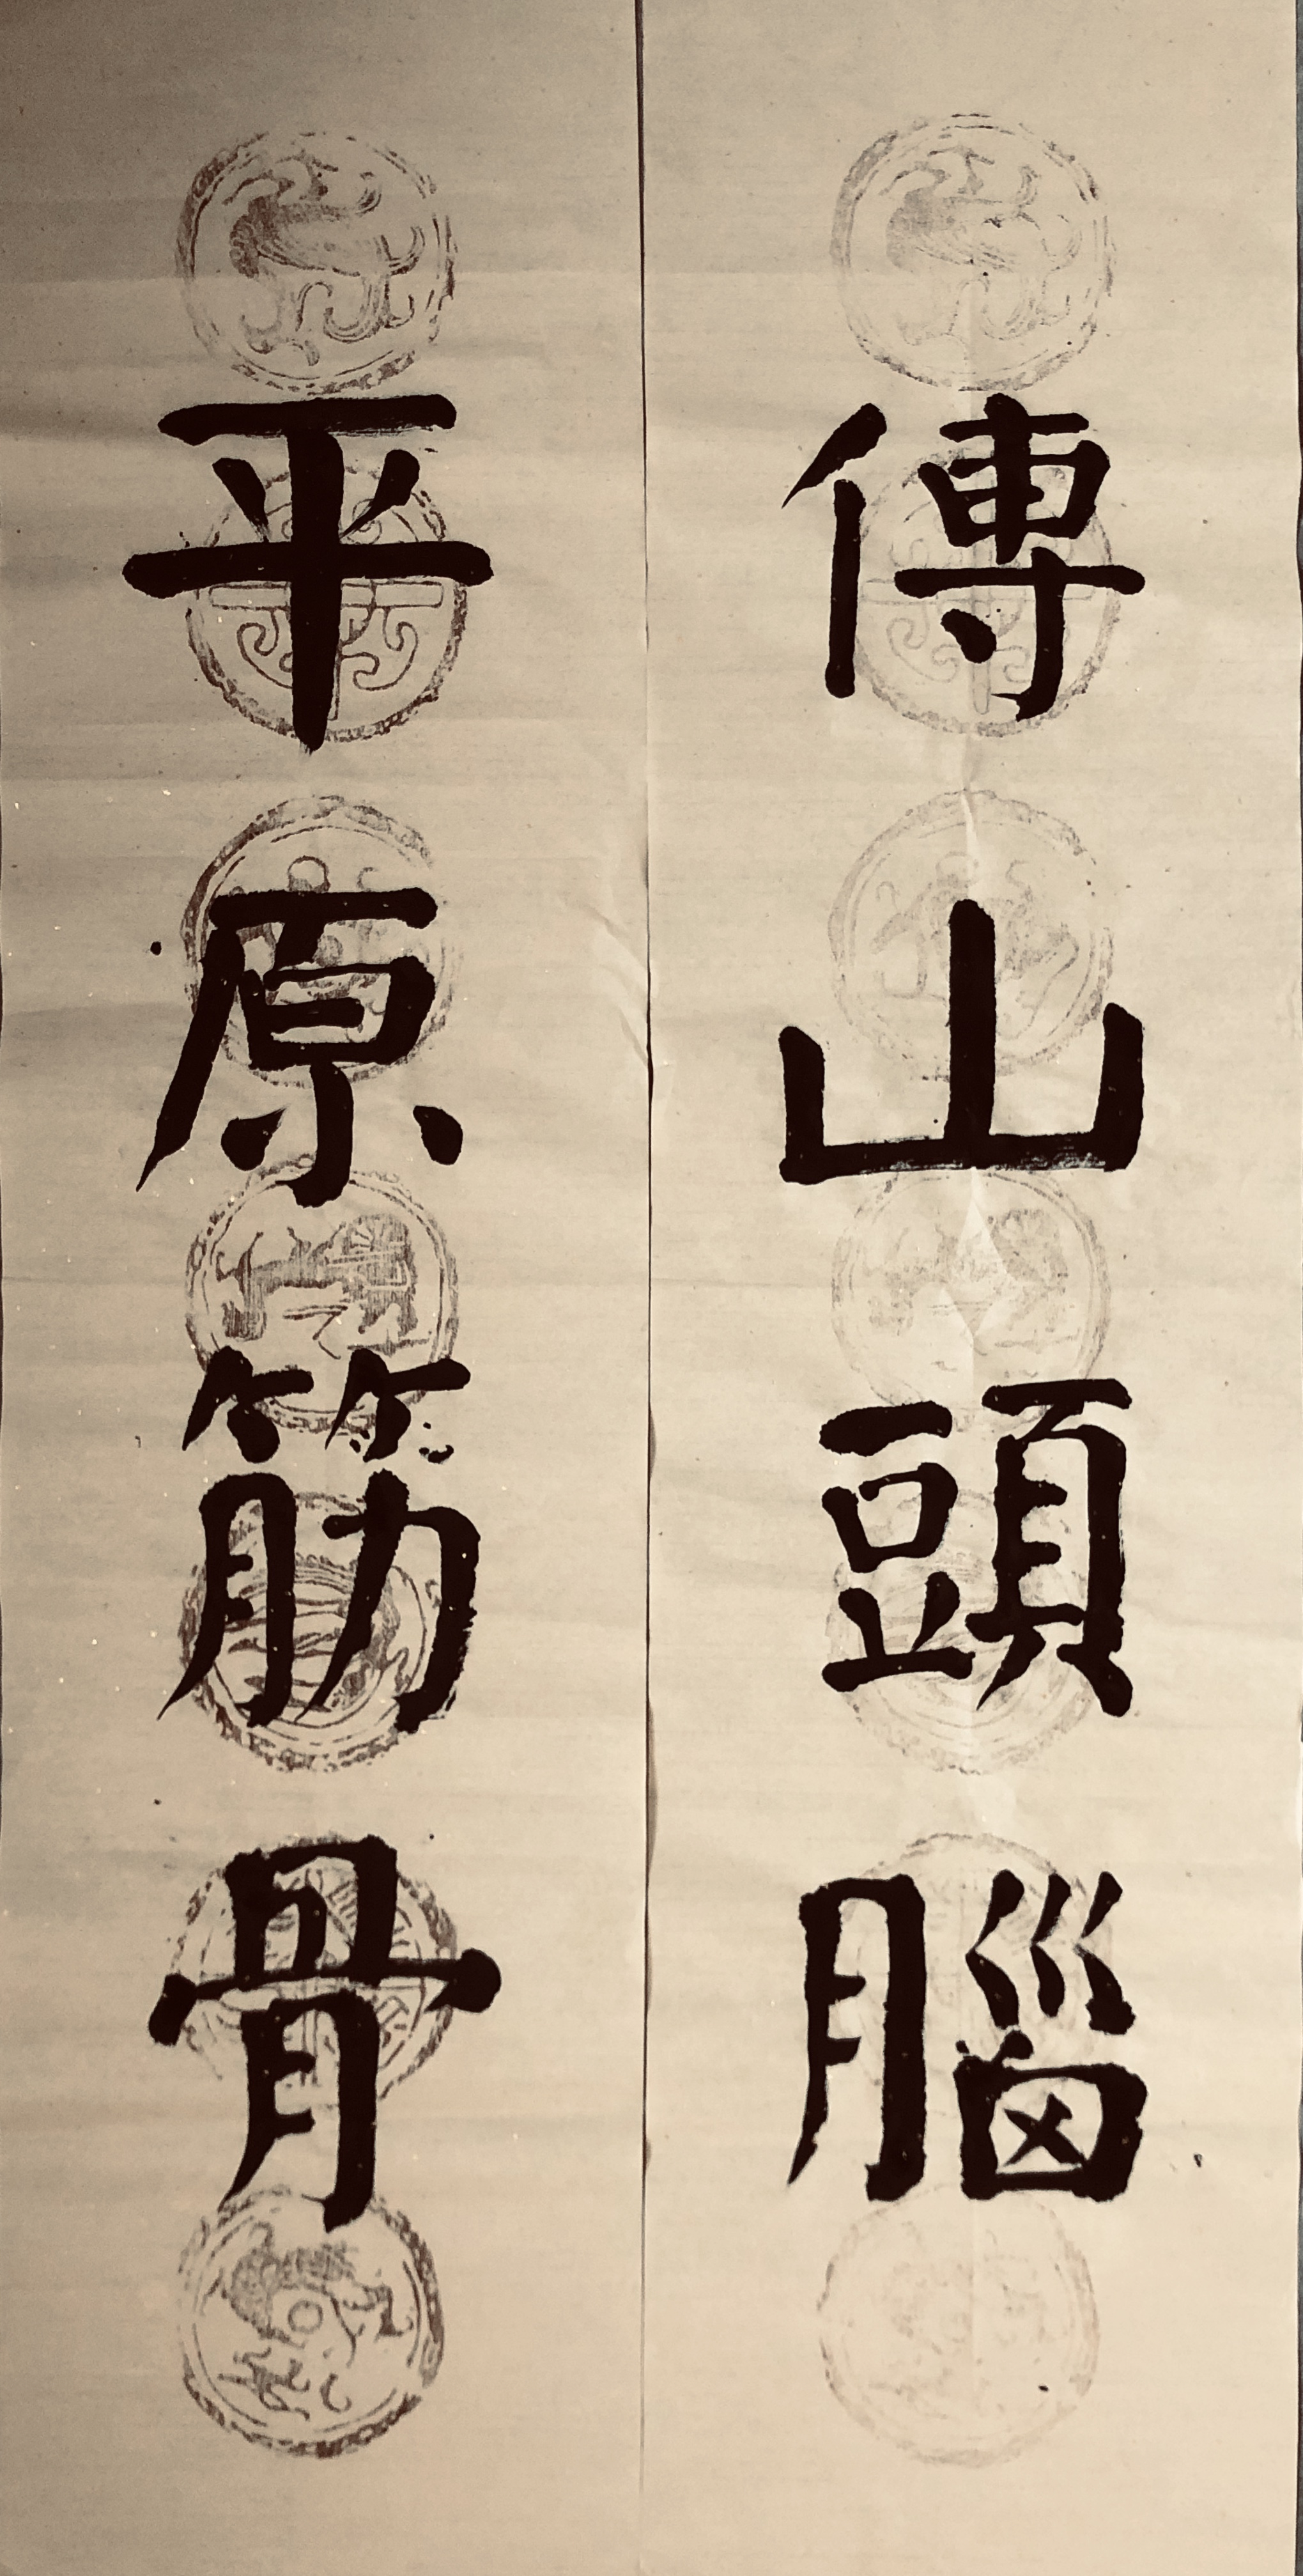 傳山頭腦
平原筋骨